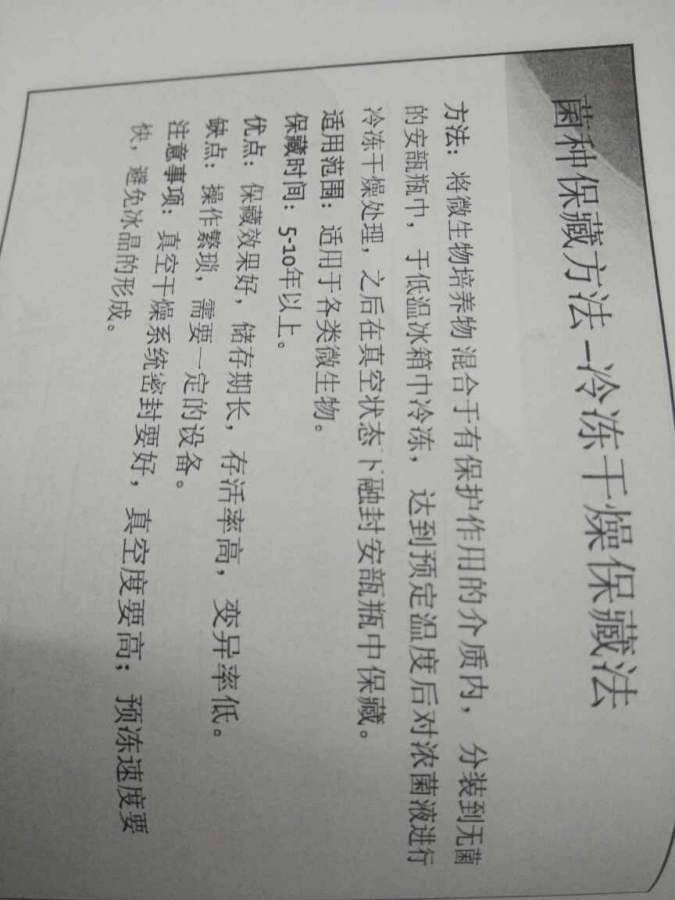 菌种保藏方法–冷冻干燥保藏法
方法：将微生物培养物 混合于有保护作用的介质内，分装到无菌
的安瓿瓶中，于低温冰箱中冷冻，达到预定温度后对浓菌液进行
冷冻干燥处理，之后在真空状态下融封安瓿瓶中保藏。
适用范围：适用于各类微生物。
保藏时间：5-10年以上。
优点：保藏效果好，储存期长，存活率高，变异率低。
缺点：操作繁琐，需要一定的设备。
注意事项：真空干燥系统密封要好，真空度要高；预冻速度要
快，避免冰晶的形成。